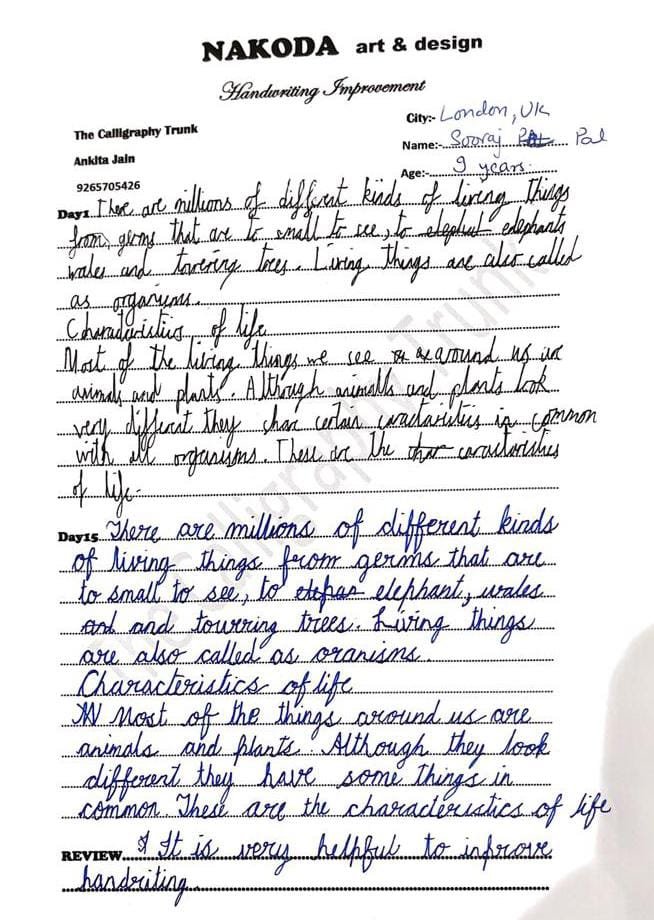 NAKODA art & design
Handwriting Improvement
City:- London, UK
The Calligraphy Trunk
Name:- Sooraj Pal
Ankita Jain
Age:- 9 years.
9265705426
Day1 There are millions of different kinds of living things
from, germs that are to small to see, to elephants
wales and towering trees. Living things are also called
as organisms.
Characteristics of life
Most of the living things we see around us are
animals and plants. Although animalls and plants look
very different they char certain caractaristics in common
with all organisms. These are the caractoristics
of life.
Day15 There are millions of different kinds
of living things from germs that are
to small to see, to elephant, wales
and touwring trees. Living things
are also called as oranisms.
Characteristics of life
Most of the things around us are
animals and plants. Although they look
different they have some things in
common. These are the characteristics of life
REVIEW... It is very helpful to improve
handriting
The Calligraphy Trunk